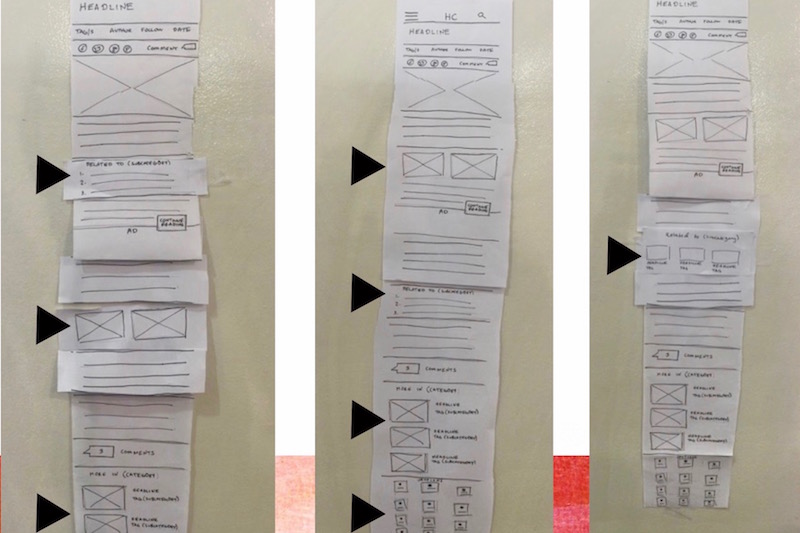 HEADLINE
TAG/S AUTHOR FOLLOW DATE
COMMENT
RELATED TO (SUBCATEGORY)
1.
2.
3.
CONTINUE READING
AD
3 COMMENTS
MORE IN (CATEGORY)
HEADLINE
TAG (SUBCATEGORY)
HEADLINE
TAG (SUBCATEGORY)
HC
HEADLINE
TAG/S AUTHOR FOLLOW DATE
COMMENT
CONTINUE READING
AD
RELATED TO (SUBCATEGORY)
1.
2.
3.
3 COMMENTS
MORE IN (CATEGORY
HEADLINE
TAG (SUBCATEGORY)
HEADLINE
TAG (SUBCATEGORY)
HEADLINE
TAG (SUBCATEGORY)
HEADLINE
TAG/S AUTHOR FOLLOW DATE
COMMENT
CONTINUE READING
AD
RELATED TO (SUBCATEGORY)
HEADLINE HEADLINE HEADLINE
TAG TAG TAG
3 COMMENTS
MORE IN (CATEGORY
HEADLINE
TAG (SUBCATEGORY)
HEADLINE
TAG (SUBCATEGORY)
HEADLINE
TAG (SUBCATEGORY)